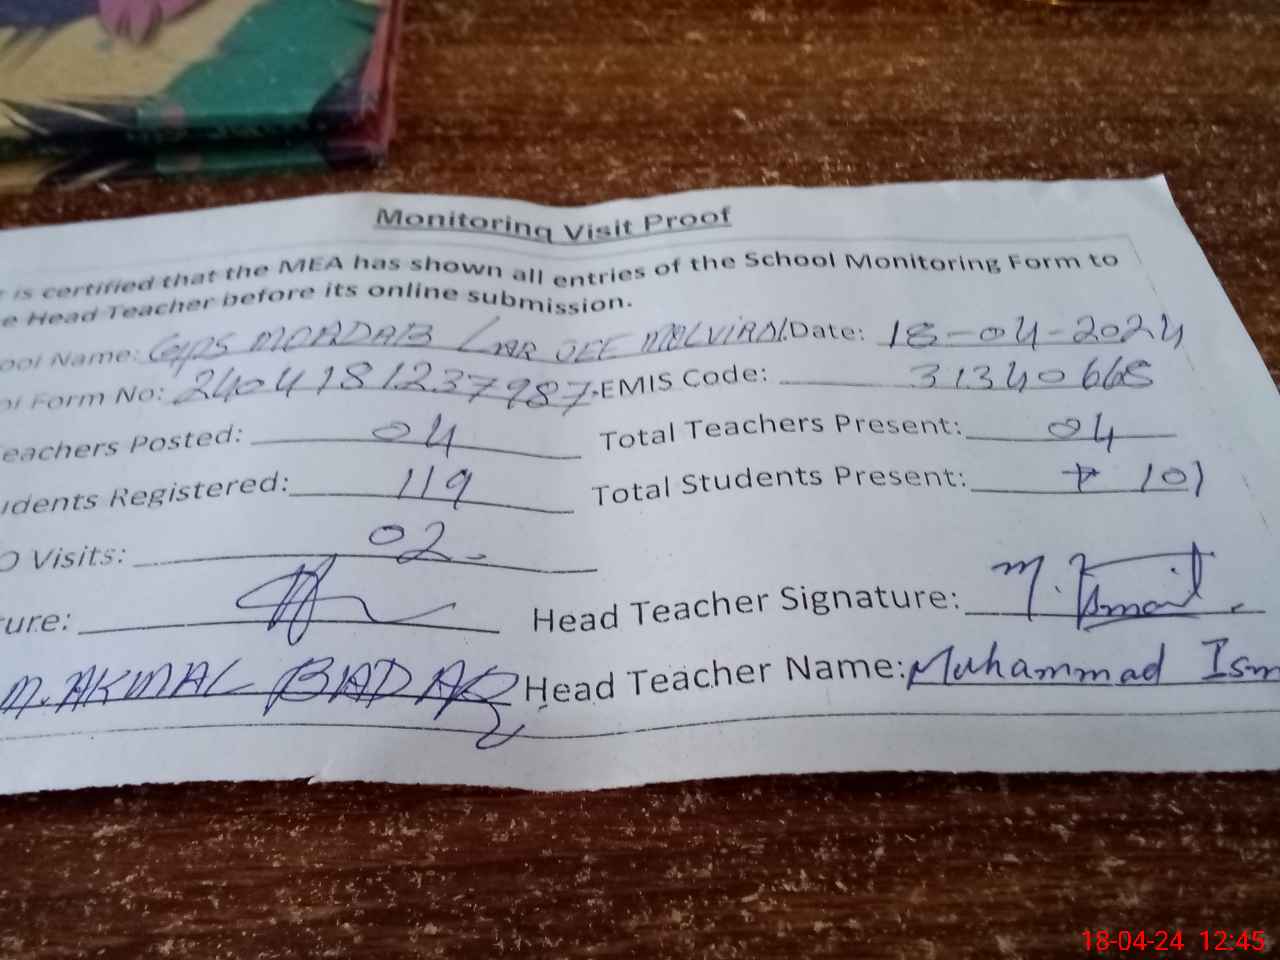 Monitoring Visit Proof
is certified that the MEA has shown all entries of the School Monitoring Form to
e Head Teacher before its online submission.
ool Name: GPS MOADAB Date: 18-04-2024
Form No: 240418181237987. EMIS Code: 31340668
eachers Posted: 04 Total Teachers Present: 04
udents Registered: 119 Total Students Present: 101
O Visits: 02.
ure: Head Teacher Signature: M. Ismail.
M. AKMAL BADAR Head Teacher Name: Muhammad Ism
18-04-24 12:45